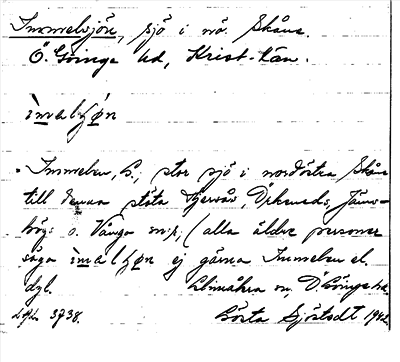 Immelnsjön, sjö i nö. Skåne.
Ö. Göinge hd, Krist. län.
ìməlʃøn
Immeln, L., stor sjö i nordöstra Skåne
till denna stöta Kjersås, Örkeneds, Jäms-
hög o. Vånga snr, (alla äldre personer
säga ìməlʃøn ej gärna Immeln el.
dyl. sn, Ö. Göinge hd.
LgL. 3738. Gösta Sjöstedt 1942